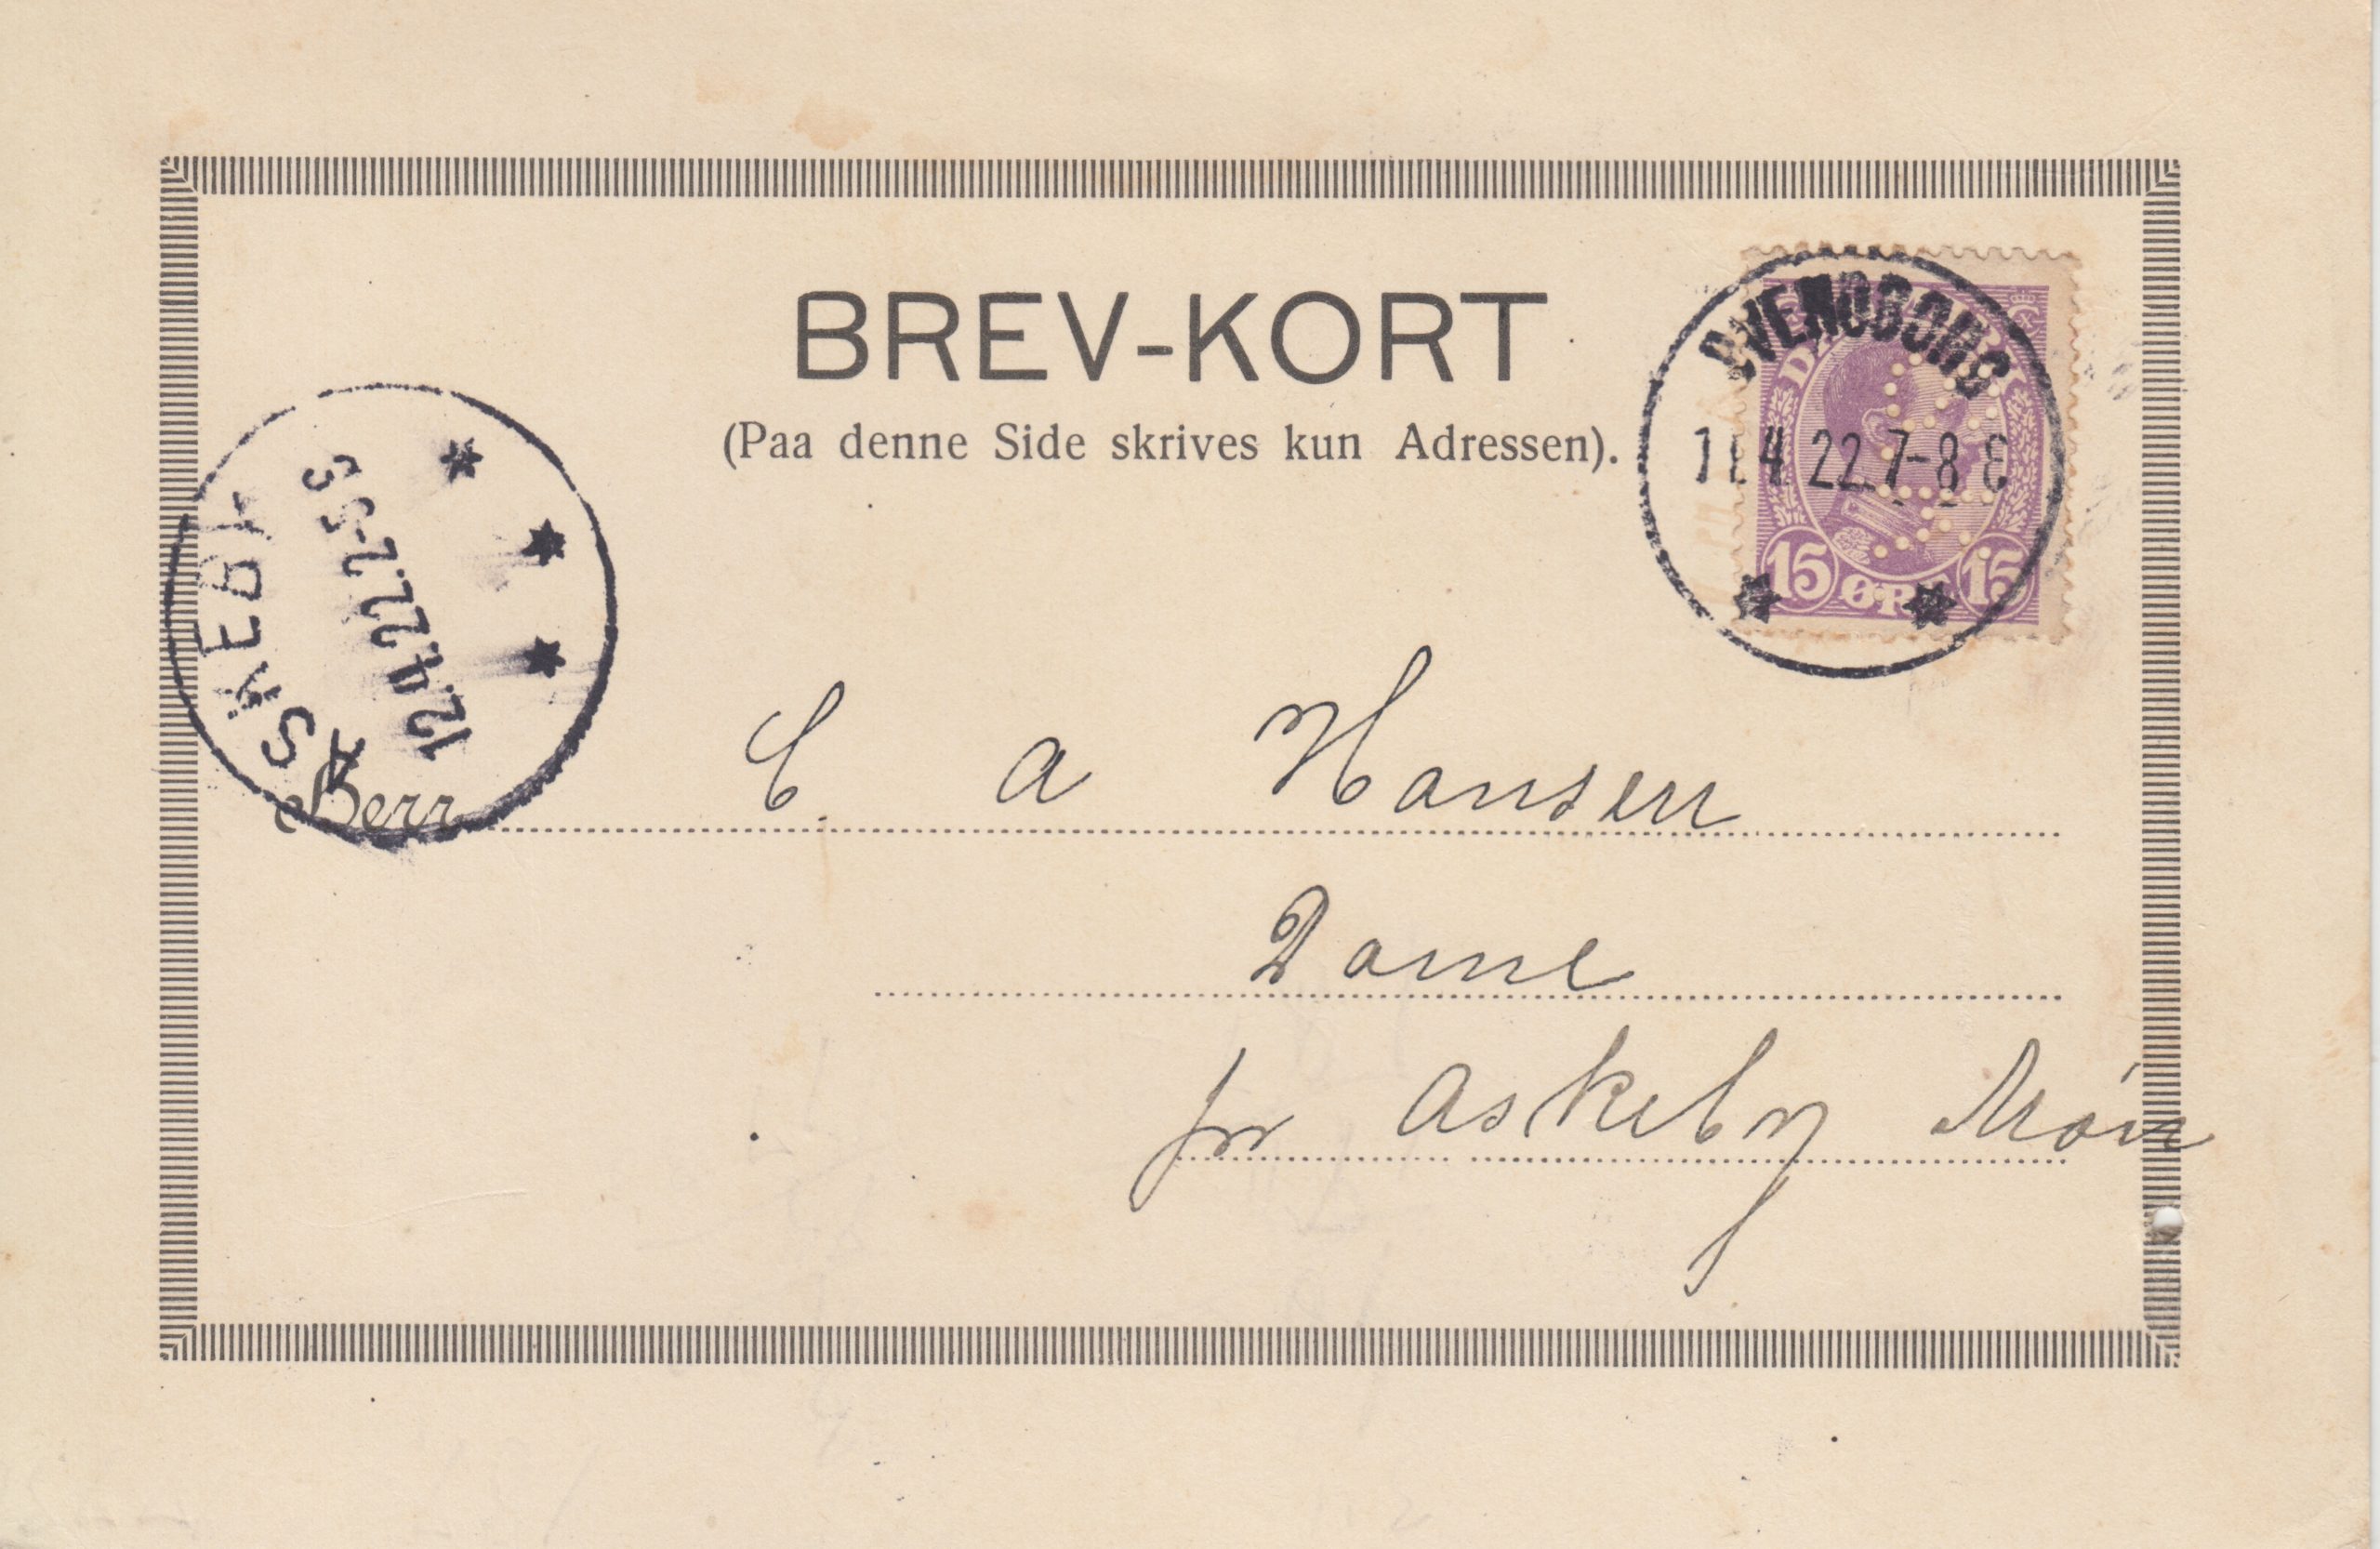 BREV-KORT
(Paa denne Side skrives kun Adressen).
SVENDBORG
11 4 22 7-8 E
DANMARK
15 ØRE 15
ASKEBY
12.4.22.2-5 S
Herr C. A Hansen
Dame
pr Askeby Møen